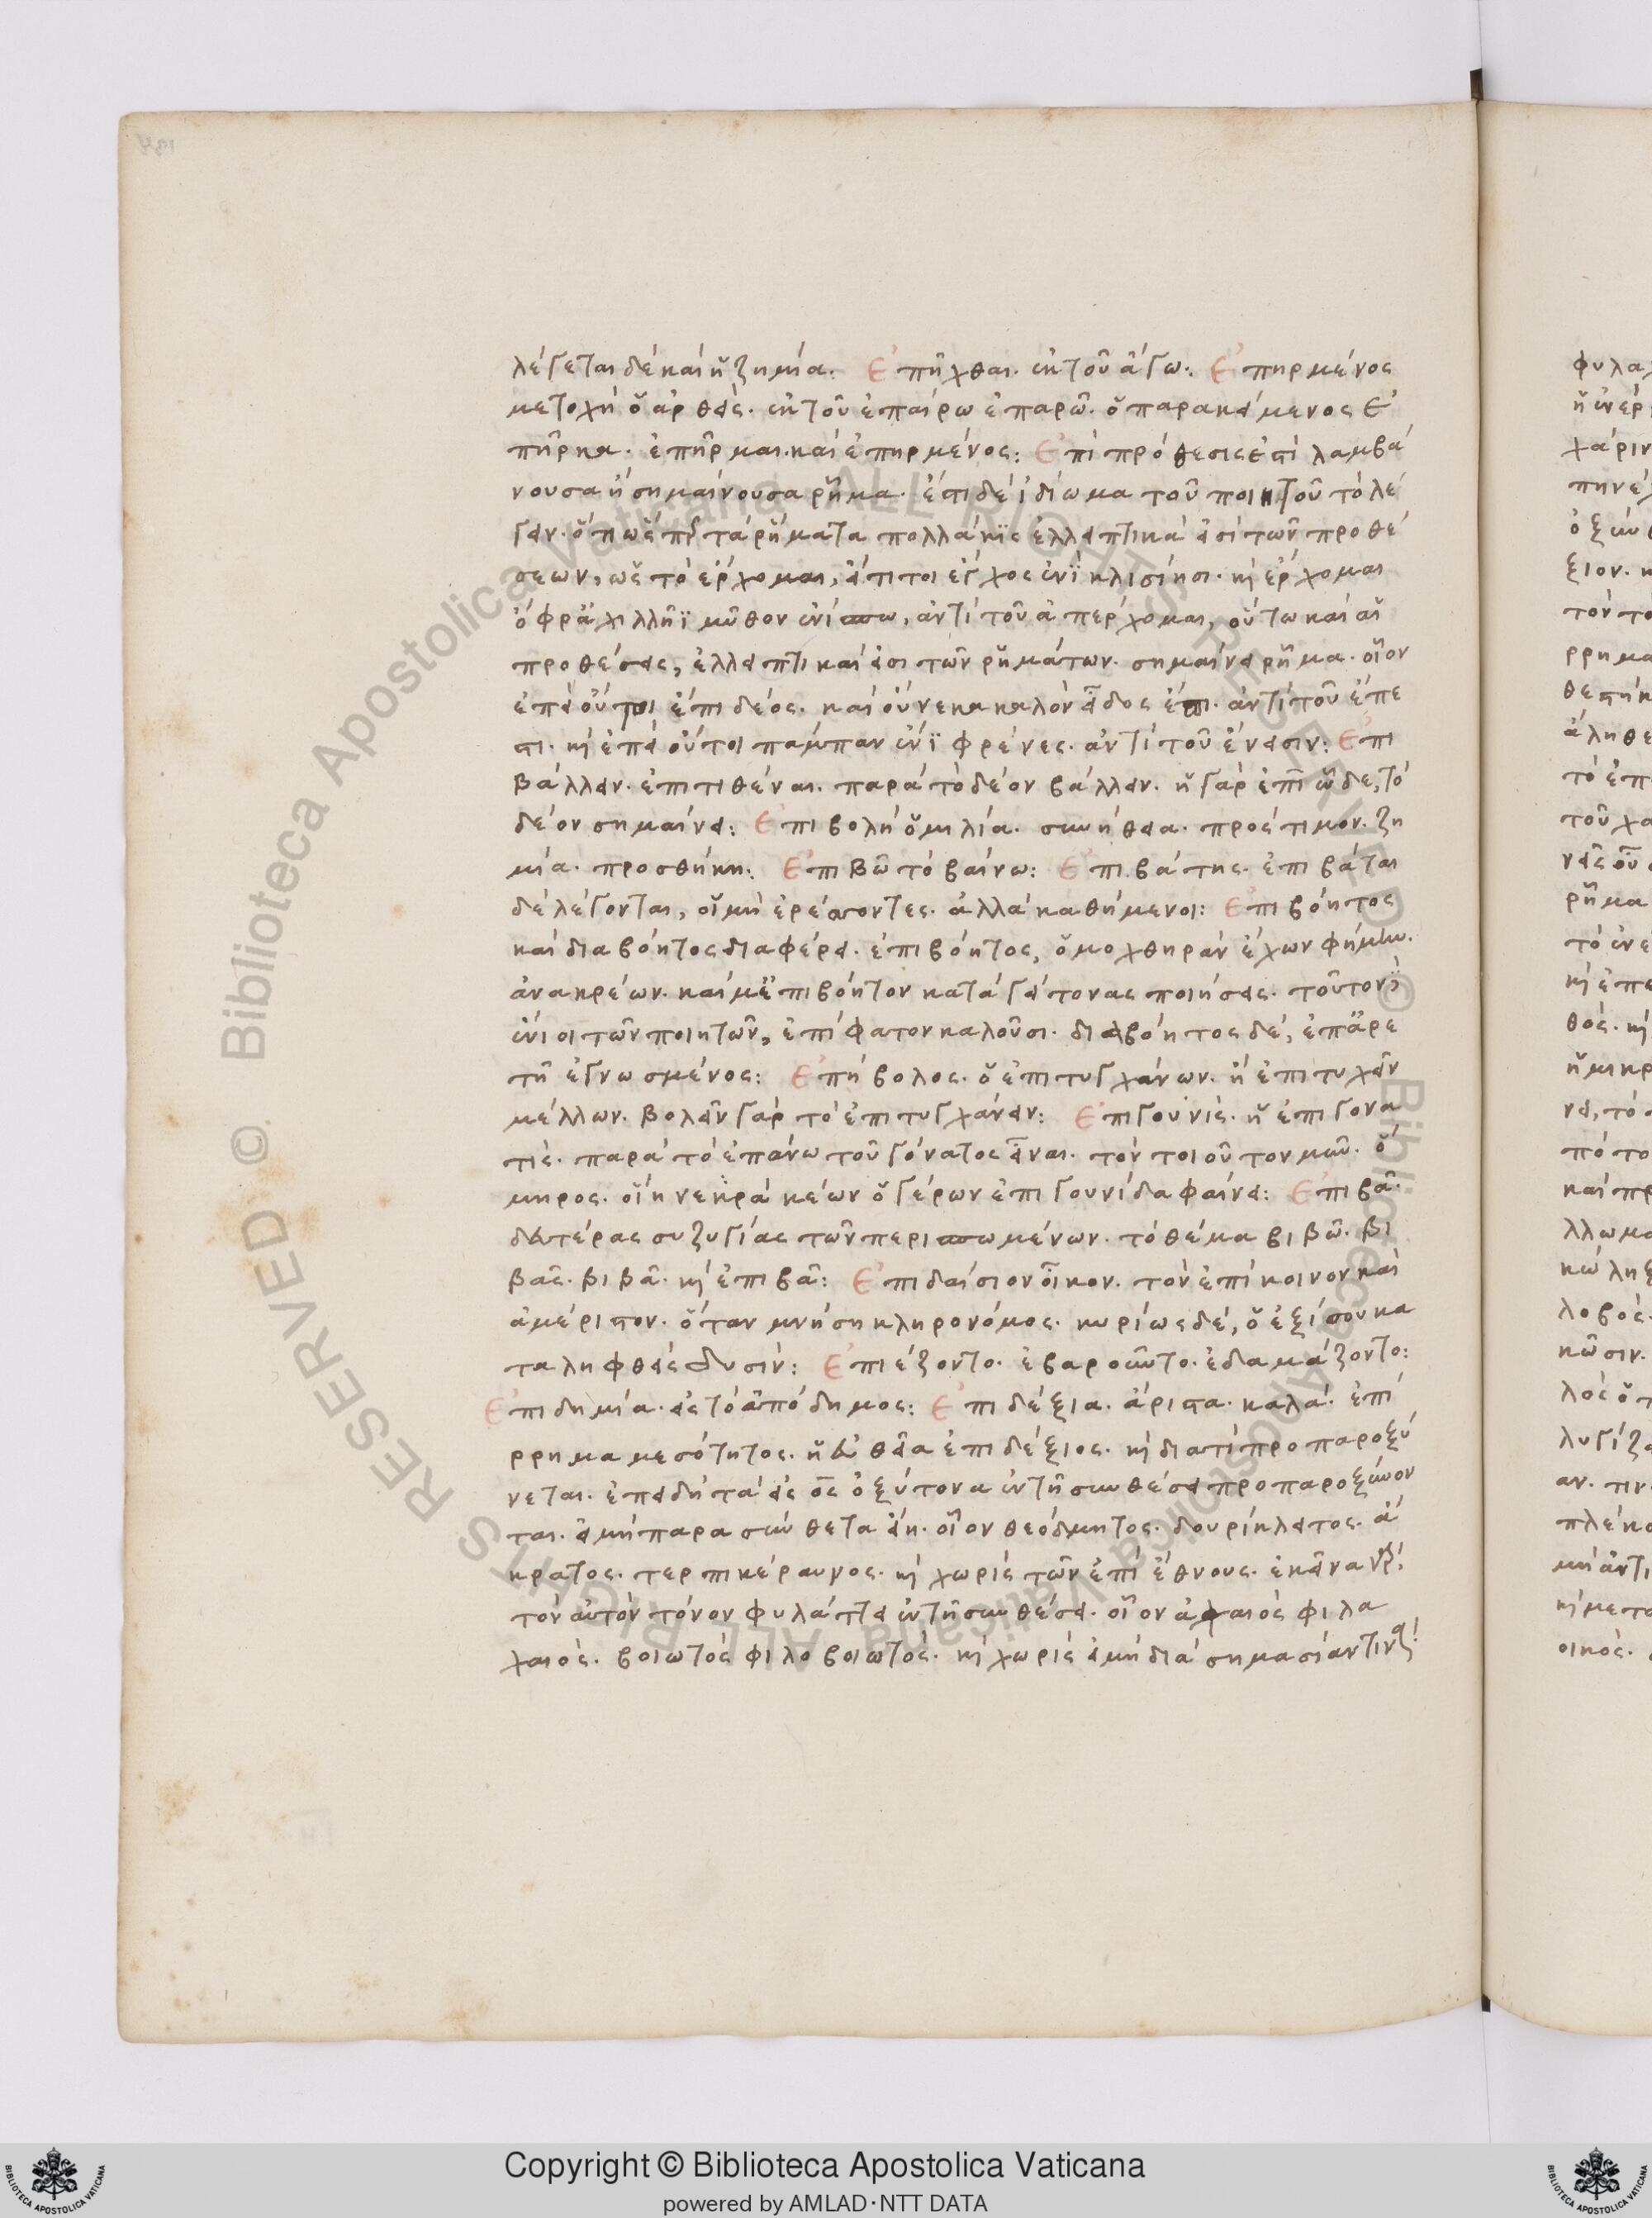 λέγεται δέ καί ἡ ζημία: Ἐπῆχθαι. ἐκ τοῦ ἄγω: Ἐπηρμένος
μετοχή ὁ ἀρθείς. ἐκ τοῦ ἐπαίρω ἐπαρῶ. ὁ παρακείμενος ἐ
πῆρκα. ἐπῆρμαι. καί ἐπηρμένος: Ἐπί πρόθεσις ἐστί λαμβά
νουσα ἤ σημαίνουσα ῥῆμα. ἔστι δέ ἰδίωμα τοῦ ποιητοῦ τό λέ
γειν. ὅτι τά ῥήματα πολλάκις ἐλλειπτικά εἰσί τῶν προθέ
σεων, ὡς τό ἔρχομαι, εἴ τι τοι ἔγχος ἐνί κλισίῃσι. κ ἔρχομαι
ὄφρ ἀχιλλῆϊ μῦθον ἐνίσπω, ἀντί τοῦ ἀπέρχομαι, οὕτω καί αἱ
προθέσεις, ἐλλειπτικαί εἰσι τῶν ῥημάτων. σημαίνει ῥῆμα. οἷον
ἐπεί οὔτοι ἔπι δέος. καί οὕνεκα καλόν εἶδος ἔπι. ἀντί τοῦ ἔπε
στι. κ ἐπεί οὔτοι πάμπαν ἔνϊ φρένες. ἀντί τοῦ ἔνεισιν: Ἐπι
βάλλειν. ἐπιτιθέναι. παρά τό δέον βάλλειν. ἡ γάρ ἐπί ὧδε, τό
δέον σημαίνει: Ἐπιβολή ὁμιλία. συνήθεια. πρόστιμον. ζη
μία. προσθήκη: Ἐπιβῶ τό βαίνω: Ἐπιβάτης. ἐπιβάται
δέ λέγονται, οἱ μή ἐρέσσοντες. ἀλλά καθήμενοι: Ἐπιβόητος
καί διαβόητος διαφέρει. ἐπιβόητος, ὁ μοχθηράν ἔχων φήμην.
ἀνακρέων. καί μ ἐπιβόητον κατά γείτονας ποιήσεις. τοῦτον
ἔνιοι τῶν ποιητῶν, ἐπίφατον καλοῦσι. διαβόητος δέ, ἐπ ἀρε
τῇ ἐγνωσμένος: Ἐπήβολος. ὁ ἐπιτυγχάνων. ἤ ἐπιτυχεῖν
μέλλων. βολεῖν γάρ τό ἐπιτυγχάνειν: Ἐπιγουνίς. ἡ ἐπιγονα
τίς. παρά τό ἐπάνω τοῦ γόνατος εἶναι. τόν τοιοῦτον μῦν. ὅ
μηρος. οἵην ἐκ ῥακέων ὁ γέρων ἐπιγουνίδα φαίνει: Ἐπιβᾶ.
δευτέρας συζυγίας τῶν περισπωμένων. τό θέμα βιβῶ. βι
βᾶς. βιβᾶ. κ ἐπιβᾶ: Ἐπιδαίσιον οἶκον. τόν ἐπίκοινον καί
ἀμέριστον. ὅταν μνήσῃ κληρονόμος. κυρίως δέ, ὁ ἐξίσου κα
ταληφθείς δυσίν: Ἐπιέζοντο. ἐβαροῦντο. ἐδαμάζοντο:
Ἐπιδημία. εἰς τό ἀπόδημος: Ἐπιδέξια. ἄριστα. καλά. ἐπί
ρρημα μεσότητος. ἡ εὐθεῖα ἐπιδέξιος. κ διατί προπαροξύ
νεται. ἐπειδή τά εἰς ος ὀξύτονα ἐν τῇ συνθέσει προπαροξύνον
ται. εἰ μή παρασύνθετα εἴη. οἷον θεόδμητος. δουρίκλειτος. ἀ
κρατος. τερπικέραυνος. κ χωρίς τῶν ἐπί ἔθνους. ἐκεῖνα γάρ
τόν αὐτόν τόνον φυλάττει ἐν τῇ συνθέσει. οἷον ἀχαιός φιλα
χαιός. βοιωτός φιλοβοιωτός. κ χωρίς εἰ μή διά σημασίαν τινά